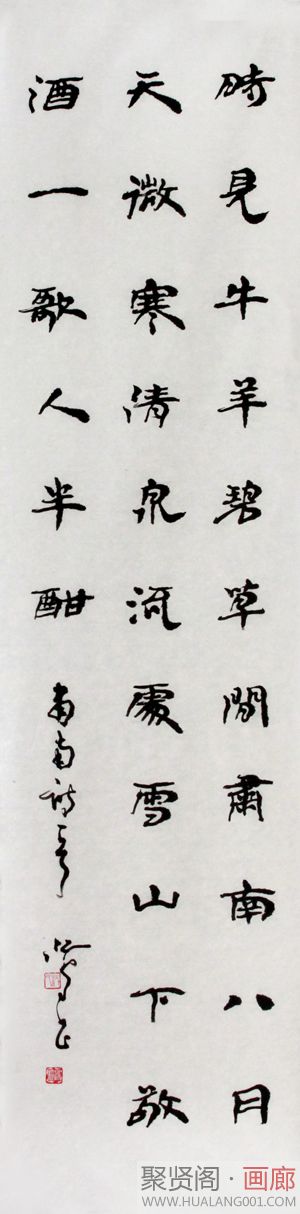 時見牛羊碧草間肅南八月
天微寒清泉流處雪山下敬
酒一歌人半酣
聚贤阁·画廊
WWW.HUALANG001.COM